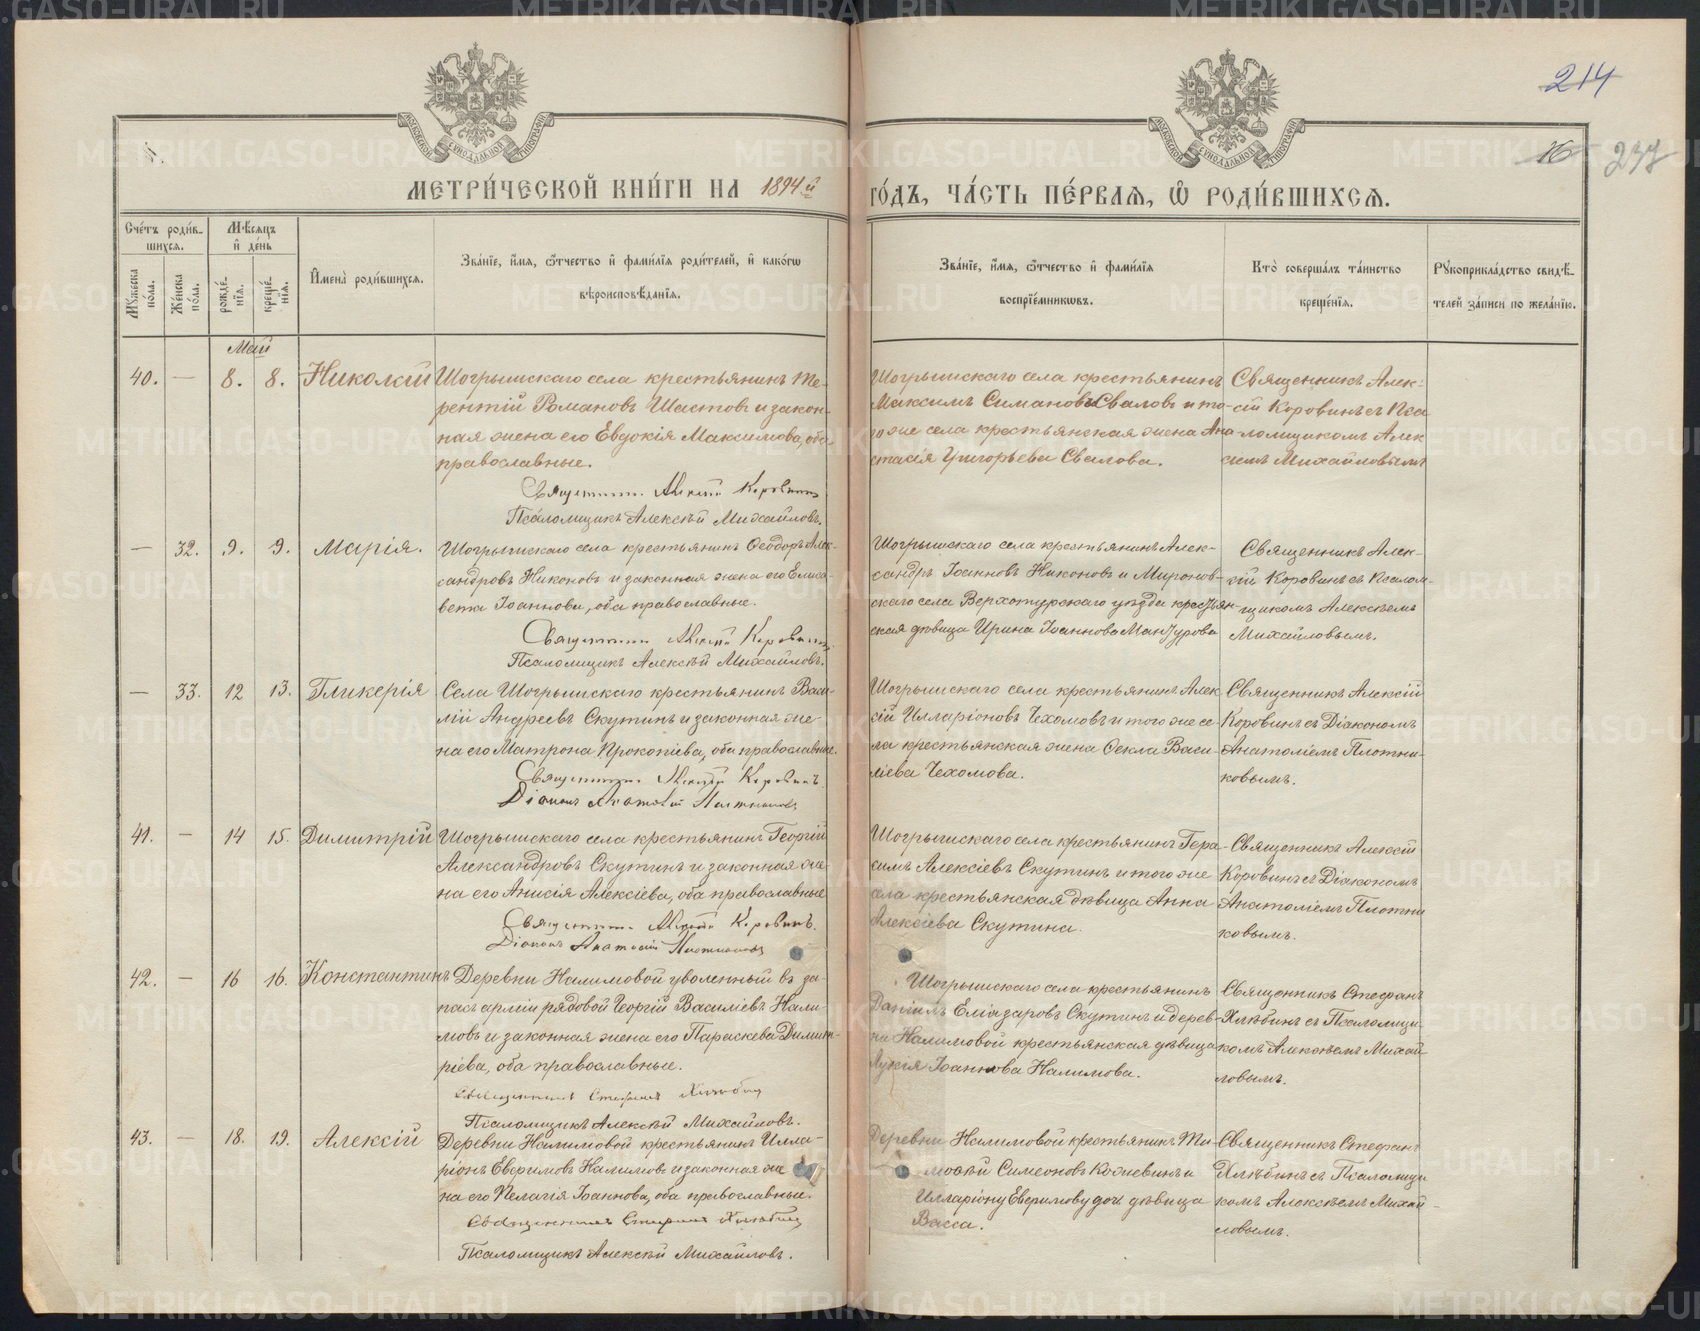 214
16
237
МЕТРИ́ЧЕСКОЙ КНИ́ГИ НА 1894 й ГО́ДЪ, ЧА́СТЬ ПЕ́РВАЯ, Ѡ҆ РОДИ́ВШИХСЯ.
Сче́тъ роди́в-
шихся.
Мѣ́сяцъ
и҆ де́нь
Мꙋ́жеска по́ла.
Же́нска по́ла.
рожде́-
нїѧ.
креще́-
нїѧ.
И҆мена̀ роди́вшихся.
Зва́нїе, и҆́мѧ, ѻ҆́тчество и҆ фами́лїѧ роди́телей, и҆ како́гѡ
вѣроисповѣ́данїѧ.
Зва́нїе, и҆́мѧ, ѻ҆́тчество и҆ фами́лїѧ
воспрїе́мникѡвъ.
Кто̀ соверша́лъ та́инство
креще́нїѧ.
Рꙋкоприкла́дство свидѣ́-
телей за́писи по жела́нїю.
Май
40. — 8. 8. Николай
Шогрышскаго села крестьянинъ Те-
рентій Романовъ Шастовъ и закон-
ная жена его Евдокія Максимова, оба
православные.
Священникъ Алексѣй Коровинъ
Псаломщикъ Алексѣй Михайловъ.
Шогрышскаго села крестьянинъ
Максимъ Симановъ Сваловъ и то-
го же села крестьянская жена Ана-
стасія Григорьева Свалова.
Священникъ Алек-
сій Коровинъ съ Пса-
ломщикомъ Алек
сѣемъ Михайловымъ
— 32. 9. 9. Марія.
Шогрышскаго села крестьянинъ Ѳеодоръ Алек-
сандровъ Никоновъ и законная жена его Елиса-
вета Іоаннова, оба православные.
Священникъ Алексѣй Коровинъ
Псаломщикъ Алексѣй Михайловъ.
Шогрышскаго села крестьянинъ Алек-
сандръ Іоанновъ Никоновъ и Миронов-
скаго села Верхотурскаго уѣзда крестьян-
ская дѣвица Ирина Іоаннова Манзурова
Священникъ Алек-
сій Коровинъ съ Псалом-
щикомъ Алексѣемъ
Михайловымъ.
— 33. 12 13. Гликерія
Села Шогрышскаго крестьянинъ Васи-
лій Андреевъ Скутинъ и законная же-
на его Матрона Прокопіева, оба православные.
Священникъ Алексѣй Коровинъ.
Діаконъ Анатолій Плотниковъ
Шогрышскаго села крестьянинъ Алек
сій Илларіоновъ Чехомовъ и того же се-
ла крестьянская жена Ѳекла Васи-
ліева Чехомова.
Священникъ Алексій
Коровинъ съ Діакономъ
Анатоліемъ Плотни-
ковымъ.
41. — 14 15. Димитрій
Шогрышскаго села крестьянинъ Георгій
Александровъ Скутинъ и законная же-
на его Анисія Алексіева, оба православные
Священникъ Алексѣй Коровинъ.
Діаконъ Анатолій Плотниковъ
Шогрышскаго села крестьянинъ Гера-
симъ Алексіевъ Скутинъ и того же
села крестьянская дѣвица Анна
Алексіева Скутина.
Священникъ Алексій
Коровинъ съ Діакономъ
Анатоліемъ Плотни
ковымъ.
42. — 16 16. Константинъ
Деревни Налимовой уволенный въ за-
пасъ арміи рядовой Георгій Василіевъ Нали-
мовъ и законная жена его Параскева Димит-
ріева, оба православные.
Священникъ Стефанъ Хлѣбинъ
Псаломщикъ Алексѣй Михайловъ.
Шогрышскаго села крестьянинъ
Даніилъ Еліазаровъ Скутинъ и дерев-
ни Налимовой крестьянская дѣвица
Лукія Іоаннова Налимова.
Священникъ Стефанъ
Хлѣбинъ съ Псаломщи-
комъ Алексѣемъ Михай-
ловымъ.
43. — 18. 19. Алексій
Деревни Налимовой крестьянинъ Илла-
ріонъ Евфимовъ Налимовъ и законная же-
на его Пелагія Іоаннова, оба православные.
Священникъ Стефанъ Хлѣбинъ
Псаломщикъ Алексѣй Михайловъ.
Деревни Налимовой крестьянинъ Ти-
моѳей Симеоновъ Кожевинъ и
Илларіону Евфимову дочь дѣвица
Васса.
Священникъ Стефанъ
Хлѣбинъ съ Псаломщи-
комъ Алексѣемъ Михай-
ловымъ.
METRIKI.GASO-URAL.RU